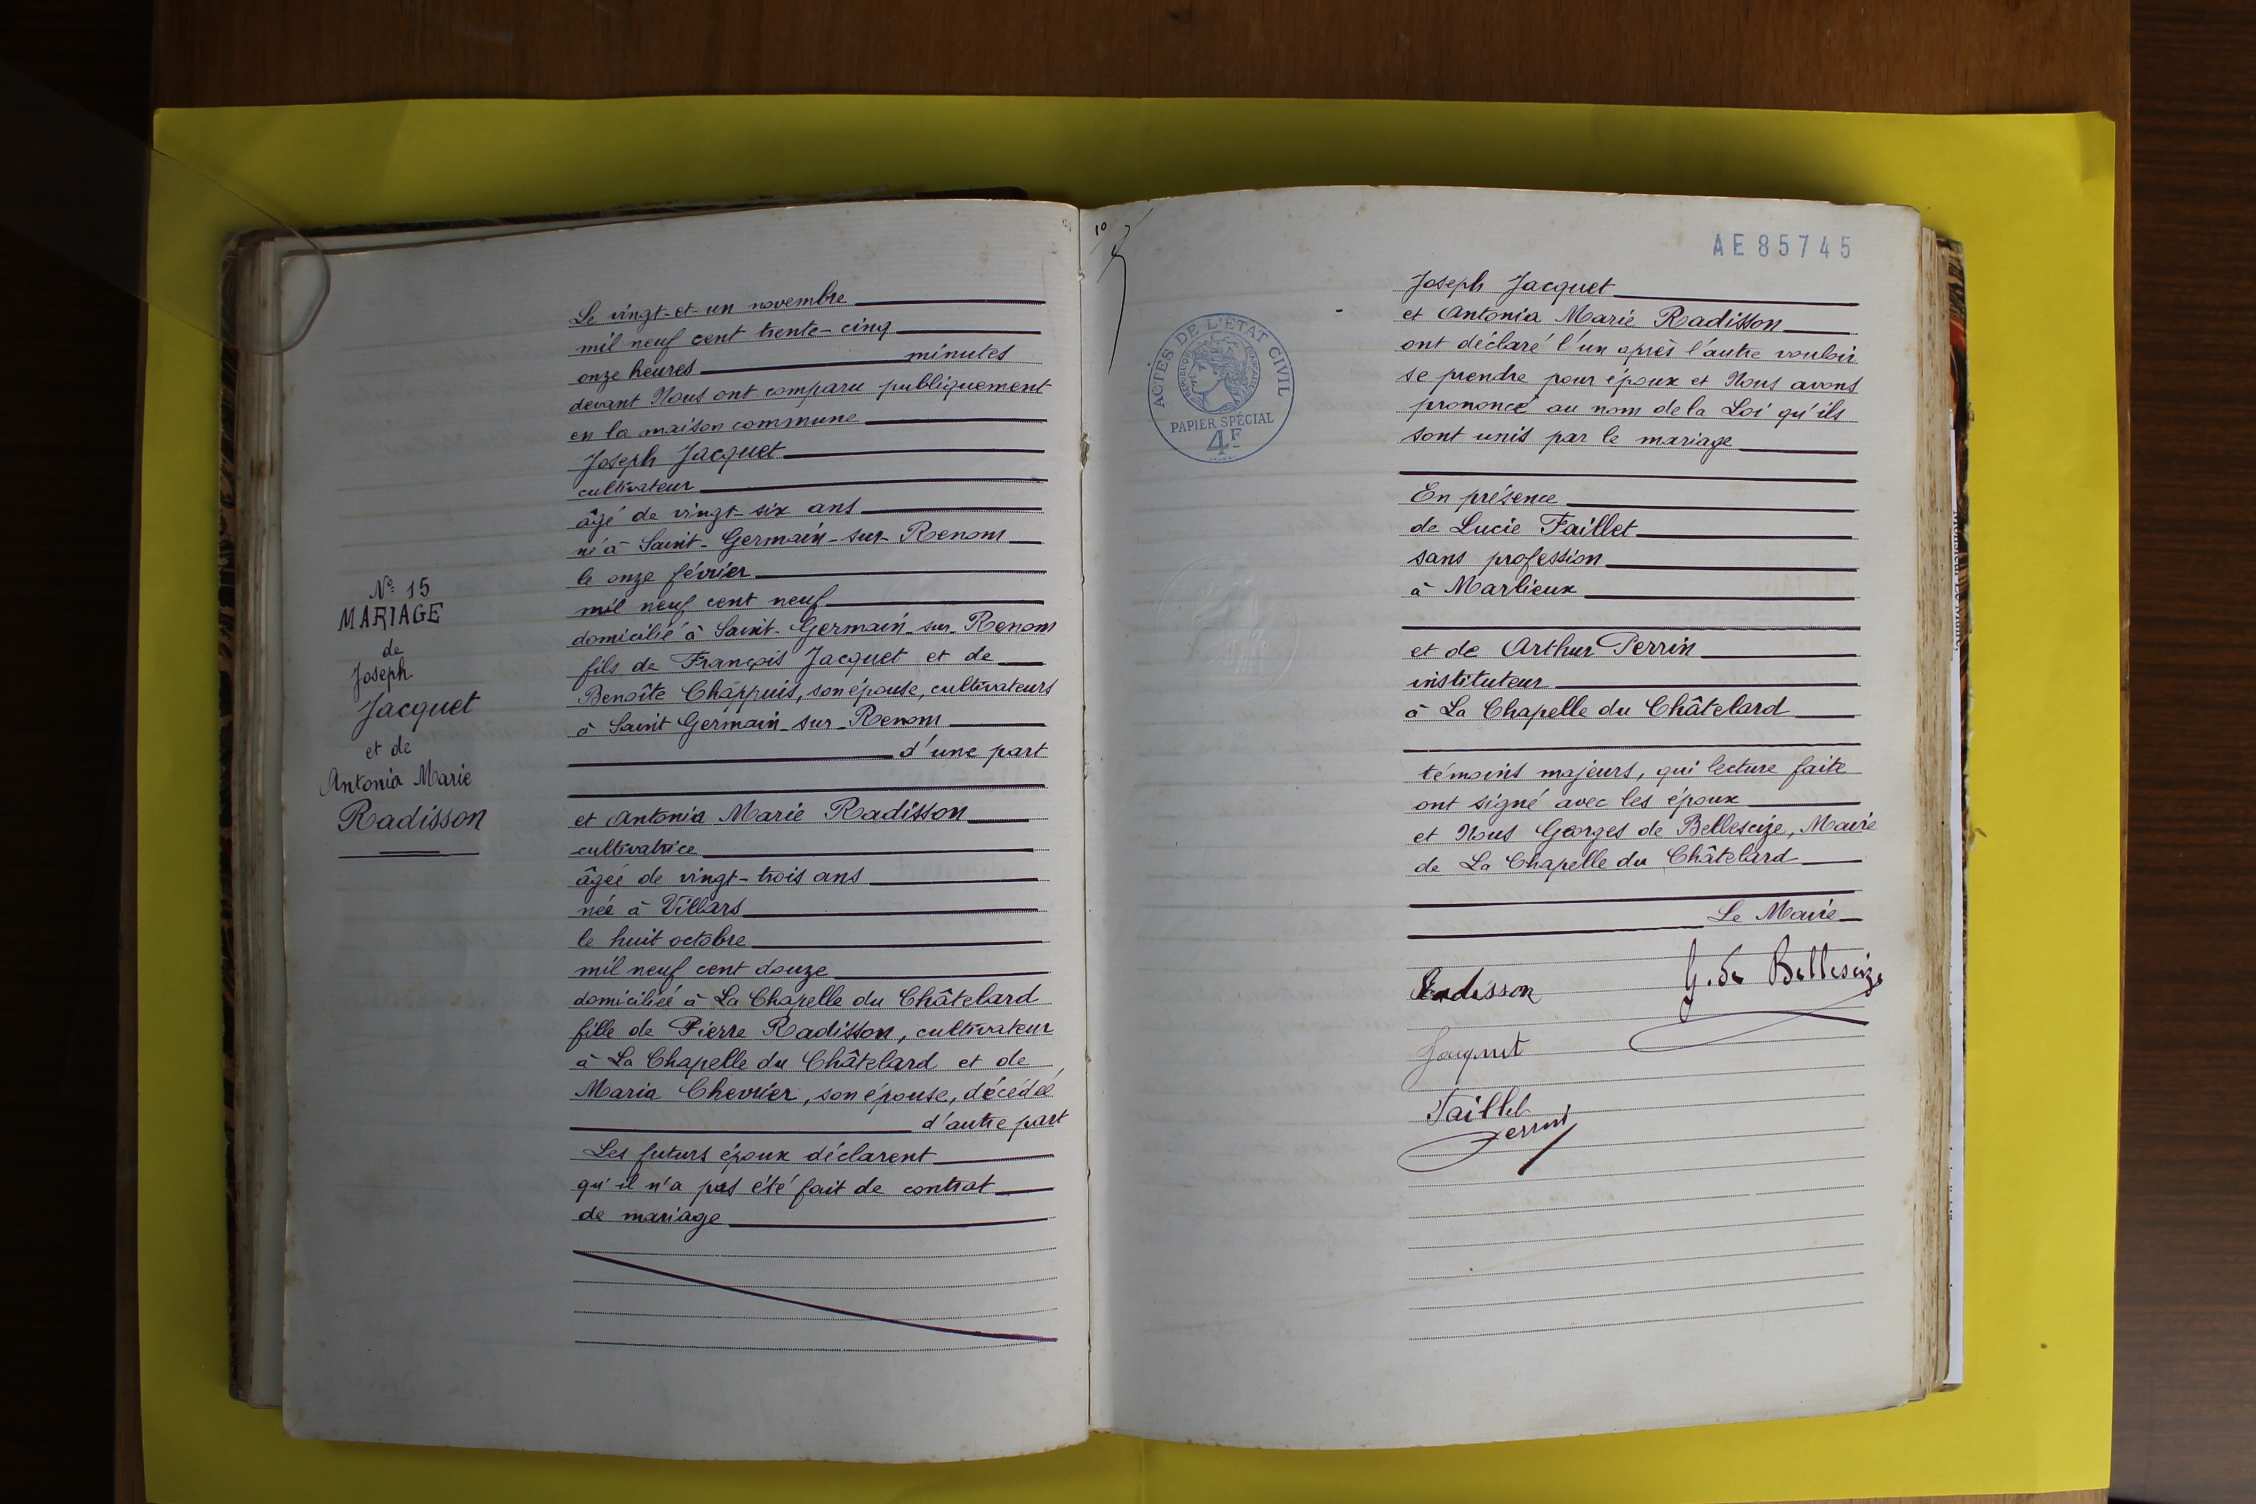 N° 15
MARIAGE
de
Joseph
Jacquet
et de
Antonia Marie
Radisson
Le vingt-et-un novembre
mil neuf cent trente-cinq
onze heures minutes
devant Nous ont comparu publiquement
en la maison commune
Joseph Jacquet
cultivateur
âgé de vingt-six ans
né à Saint-Germain-sur-Renom
le onze février
mil neuf cent neuf
domicilié à Saint-Germain-sur-Renom
fils de François Jacquet et de
Benoîte Chappuis, son épouse, cultivateurs
à Saint Germain-sur-Renom
d'une part
et Antonia Marie Radisson
cultivatrice
âgée de vingt-trois ans
née à Villars
le huit octobre
mil neuf cent douze
domiciliée à La Chapelle du Châtelard
fille de Pierre Radisson, cultivateur
à La Chapelle du Châtelard et de
Maria Chevrier, son épouse, décédée
d'autre part
Les futurs époux déclarent
qu'il n'a pas été fait de contrat
de mariage
10
AE 85745
ACTES DE L'ETAT CIVIL
REPUBLIQUE FRANÇAISE
PAPIER SPÉCIAL
4F
Joseph Jacquet
et Antonia Marie Radisson
ont déclaré l'un après l'autre vouloir
se prendre pour époux et Nous avons
prononcé au nom de la Loi qu'ils
sont unis par le mariage
En présence
de Lucie Taillet
sans profession
à Marlieux
et de Arthur Perrin
instituteur
à La Chapelle du Châtelard
témoins majeurs, qui lecture faite
ont signé avec les époux
et Nous Georges de Bellescize, Maire
de La Chapelle du Châtelard
Le Maire
Radisson
G. de Bellescize
Jacquet
Taillet
Perrin